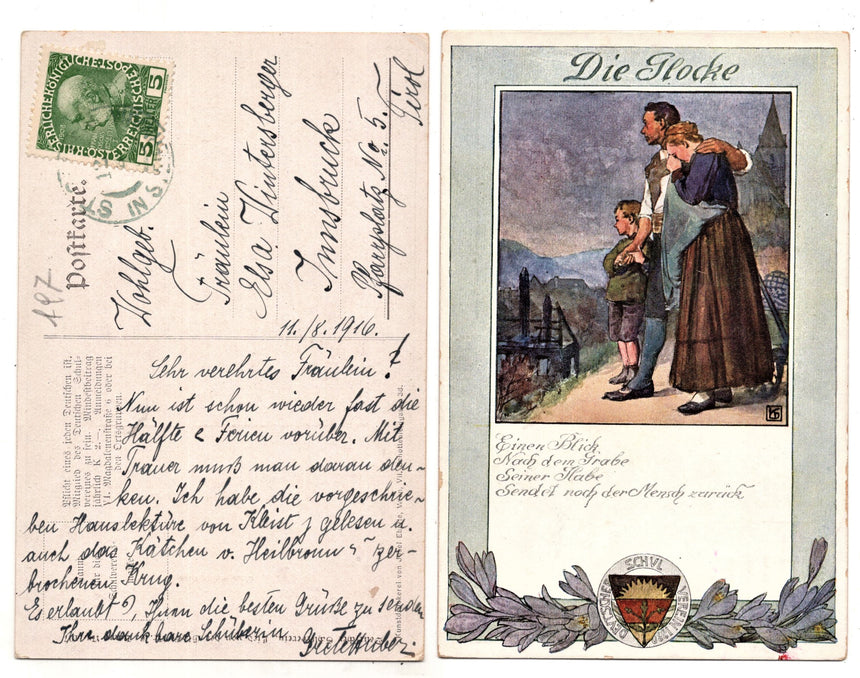 KAISERLICHE KÖNIGLICHE ÖSTERREICHISCHE
5
5
Postkarte.
197
Wohlgeb.
Fräulein
Elsa Wintersberger
Innsbruck
Pfarrplatz No. 5.
Tirol
Pflicht eines jeden Deutschen ist,
Mitglied des Deutschen Schul-
vereines zu sein. Mindestbeitrag
jährlich K 2.—. Anmeldungen
VI. Magdalenenstraße 6 oder bei
den Ortsgruppen.
11./8. 1916.
Sehr verehrtes Fräulein!
Nun ist schon wieder fast die
Hälfte Ferien vorüber. Mit
Trauer muß man daran den-
ken. Ich habe die vorgeschrie-
ben Hauslektüre von Kleist gelesen u.
auch das Kätchen v. Heilbronn zer-
brochenen Krug.
Es erlaubt, Ihnen die besten Grüße zu senden
Ihre dankbare Schülerin
Die Glocke
Einen Blick
Nach dem Grabe
Seiner Habe
Sendet noch der Mensch zurück
DEUTSCHER SCHUL VEREIN 1880